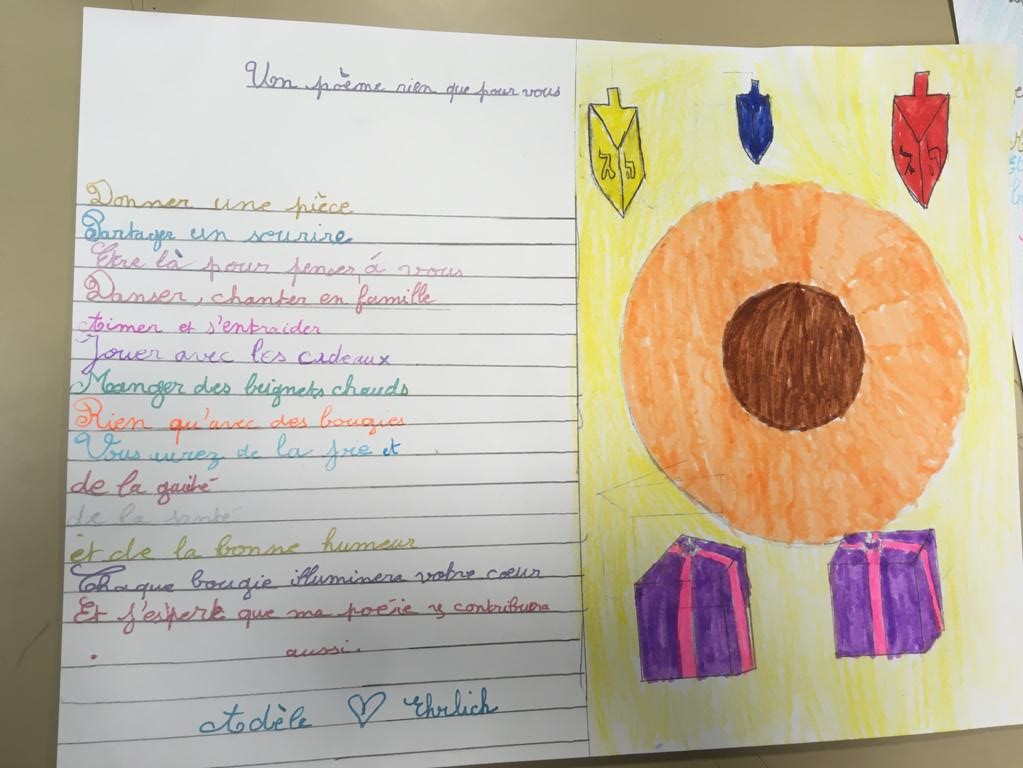 Un poème rien que pour vous
Donner une pièce
Partager un sourire
Être là pour penser á vous
Danser, chanter en famille
Aimer et s'entraider
Jouer avec les cadeaux
Manger des beignets chauds
Rien qu'avec des bougies
Vous de la joie et
de la gaité
de la santé
et de la bonne humeur
Chaque bougie illuminera votre cœur
Et j'espère que ma poésie y contribuera
aussi.
Adèle Ehrlich